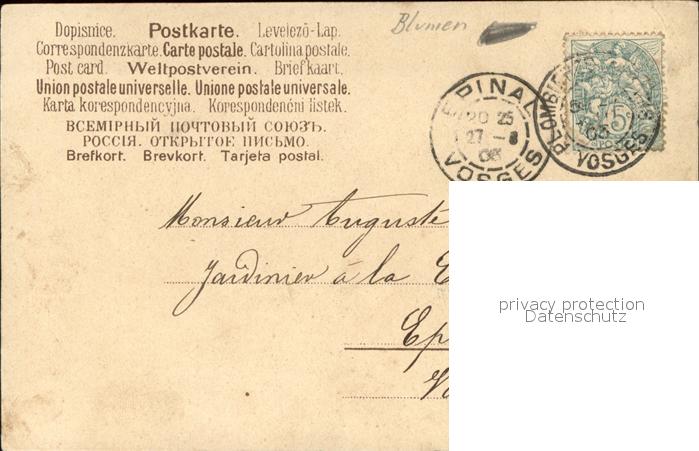 Dopisnice. Postkarte. Levelező-Lap.
Correspondenzkarte. Carte postale. Cartolina postale.
Post card. Weltpostverein. Briefkaart.
Union postale universelle. Unione postale universale.
Karta korespondencyjna. Korespondenčni listek.
ВСЕМІРНЫЙ ПОЧТОВЫЙ СОЮЗЪ.
РОССІЯ. ОТКРЫТОЕ ПИСЬМО.
Brefkort. Brevkort. Tarjeta postal.
Blumen
EPINAL
20 25
27 - 8
VOSGES
PLOMBIE
VOSGES
5
Monsieur Auguste
Jardinier à la
Ep
privacy protection
Datenschutz